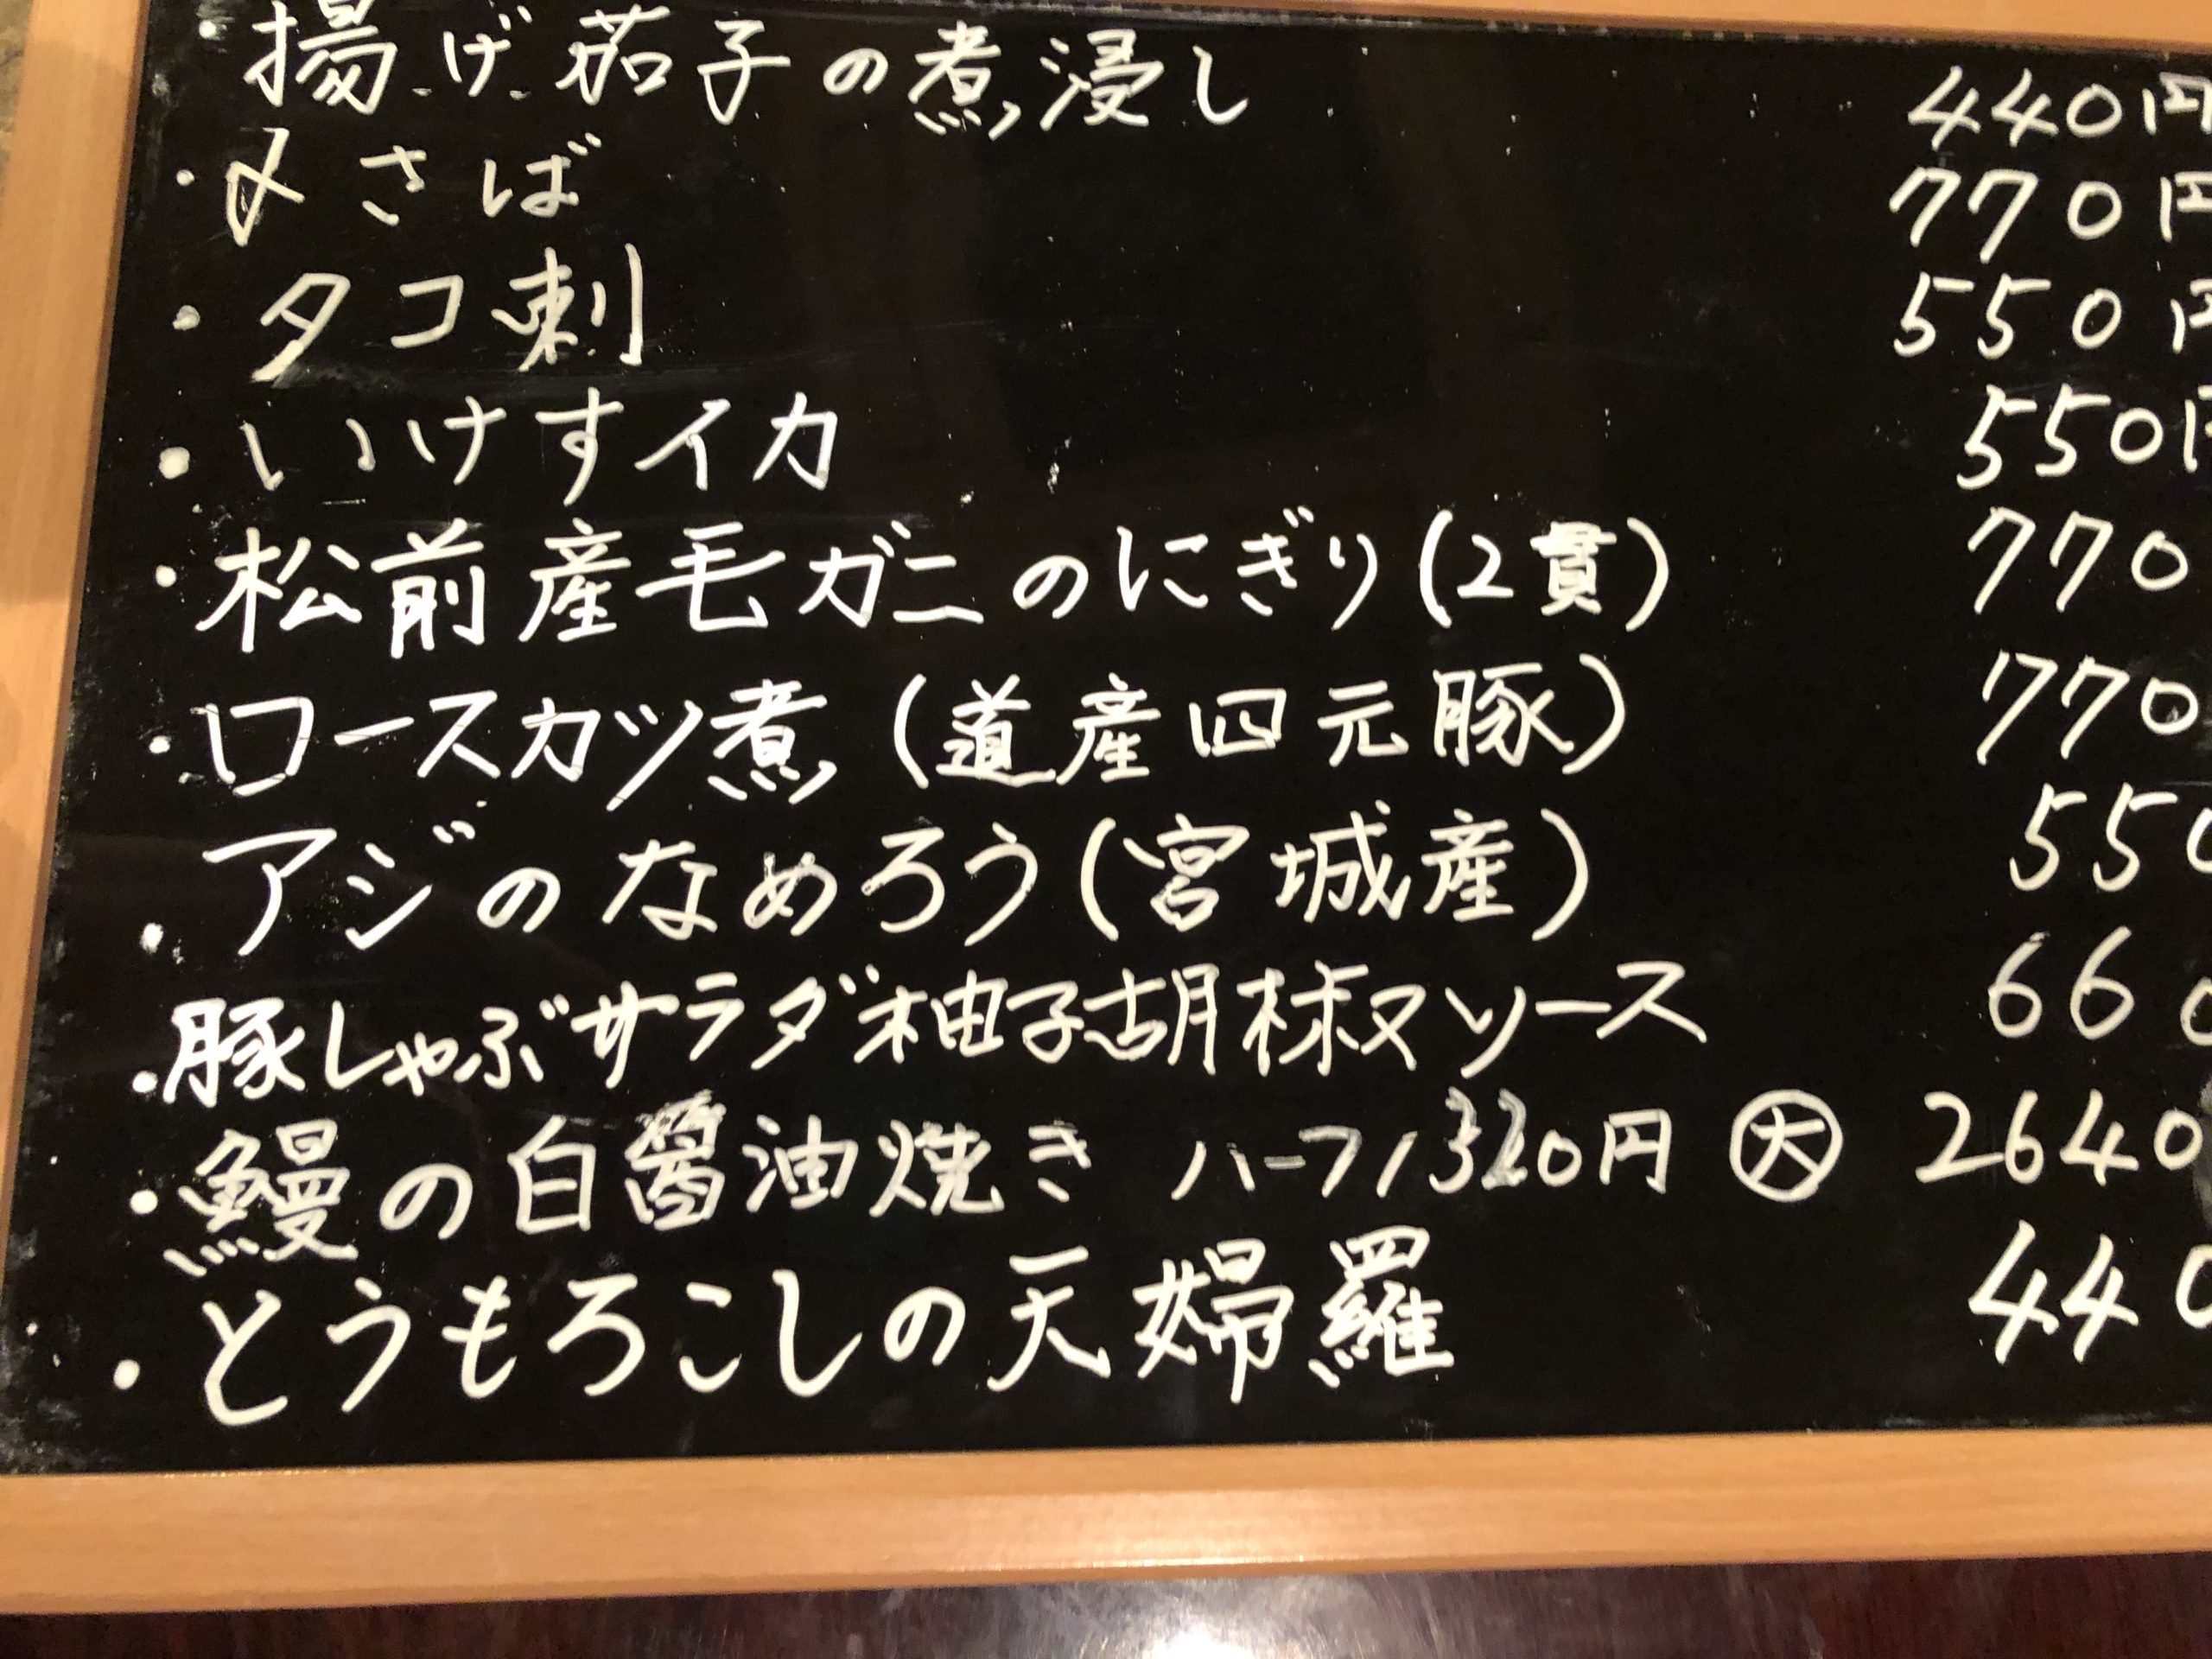 ・揚げ茄子の煮浸し 440円
・〆さば 770円
・タコ刺 550円
・いけすイカ 550円
・松前産毛ガニのにぎり(2貫) 770
・ロースカツ煮(道産四元豚) 770
・アジのなめろう(宮城産) 550
・豚しゃぶサラダ柚子胡椒ソース 660
・鰻の白醤油焼き ハーフ1320円 ㊛ 2640
・とうもろこしの天婦羅 440